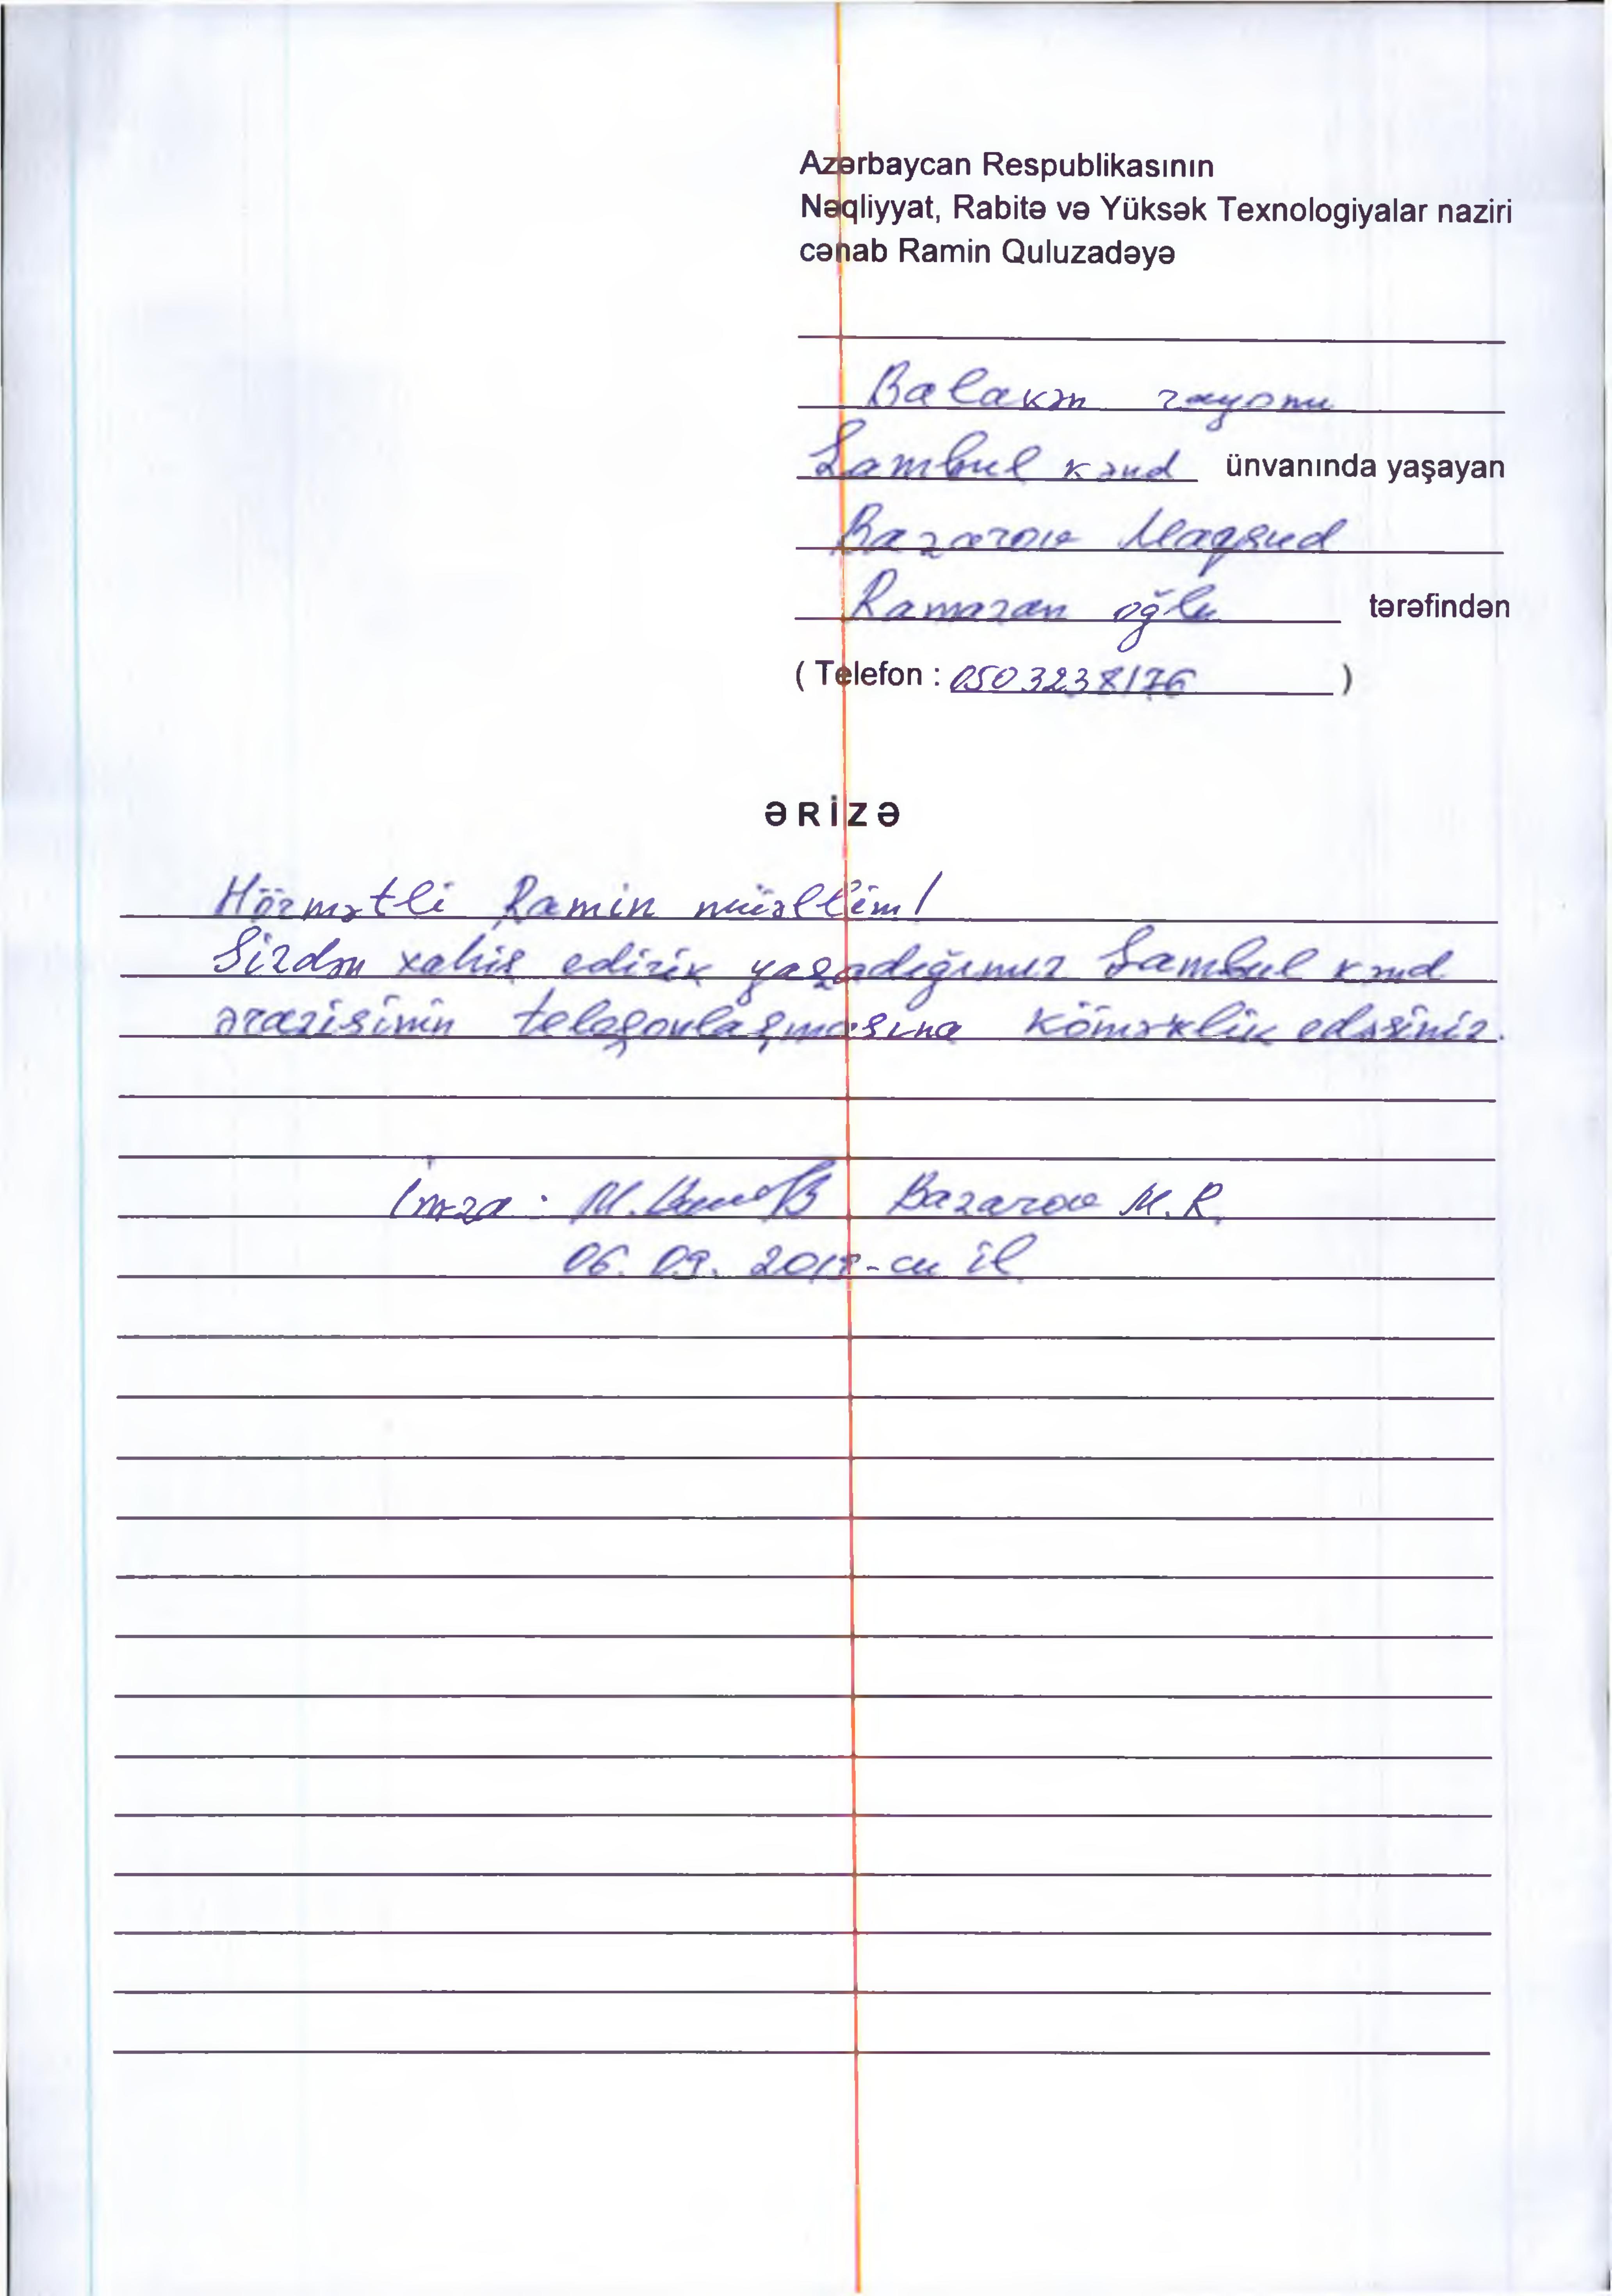 Azərbaycan Respublikasının
Nəqliyyat, Rabitə və Yüksək Texnologiyalar naziri
cənab Ramin Quluzadəyə
Balakən rayonu
Şambul kənd ünvanında yaşayan
Bazarov Maqsud
Ramazan oğlu tərəfindən
( Telefon : 0503238176 )
ƏRİZƏ
Hörmətli Ramin müəllim!
Sizdən xahiş edirik yaşadığımız Şambul kənd
ərazisinin telefonlaşmasına köməklik edəsiniz.
İmza : Bazarov M.R.
06. 09. 2018-cu il